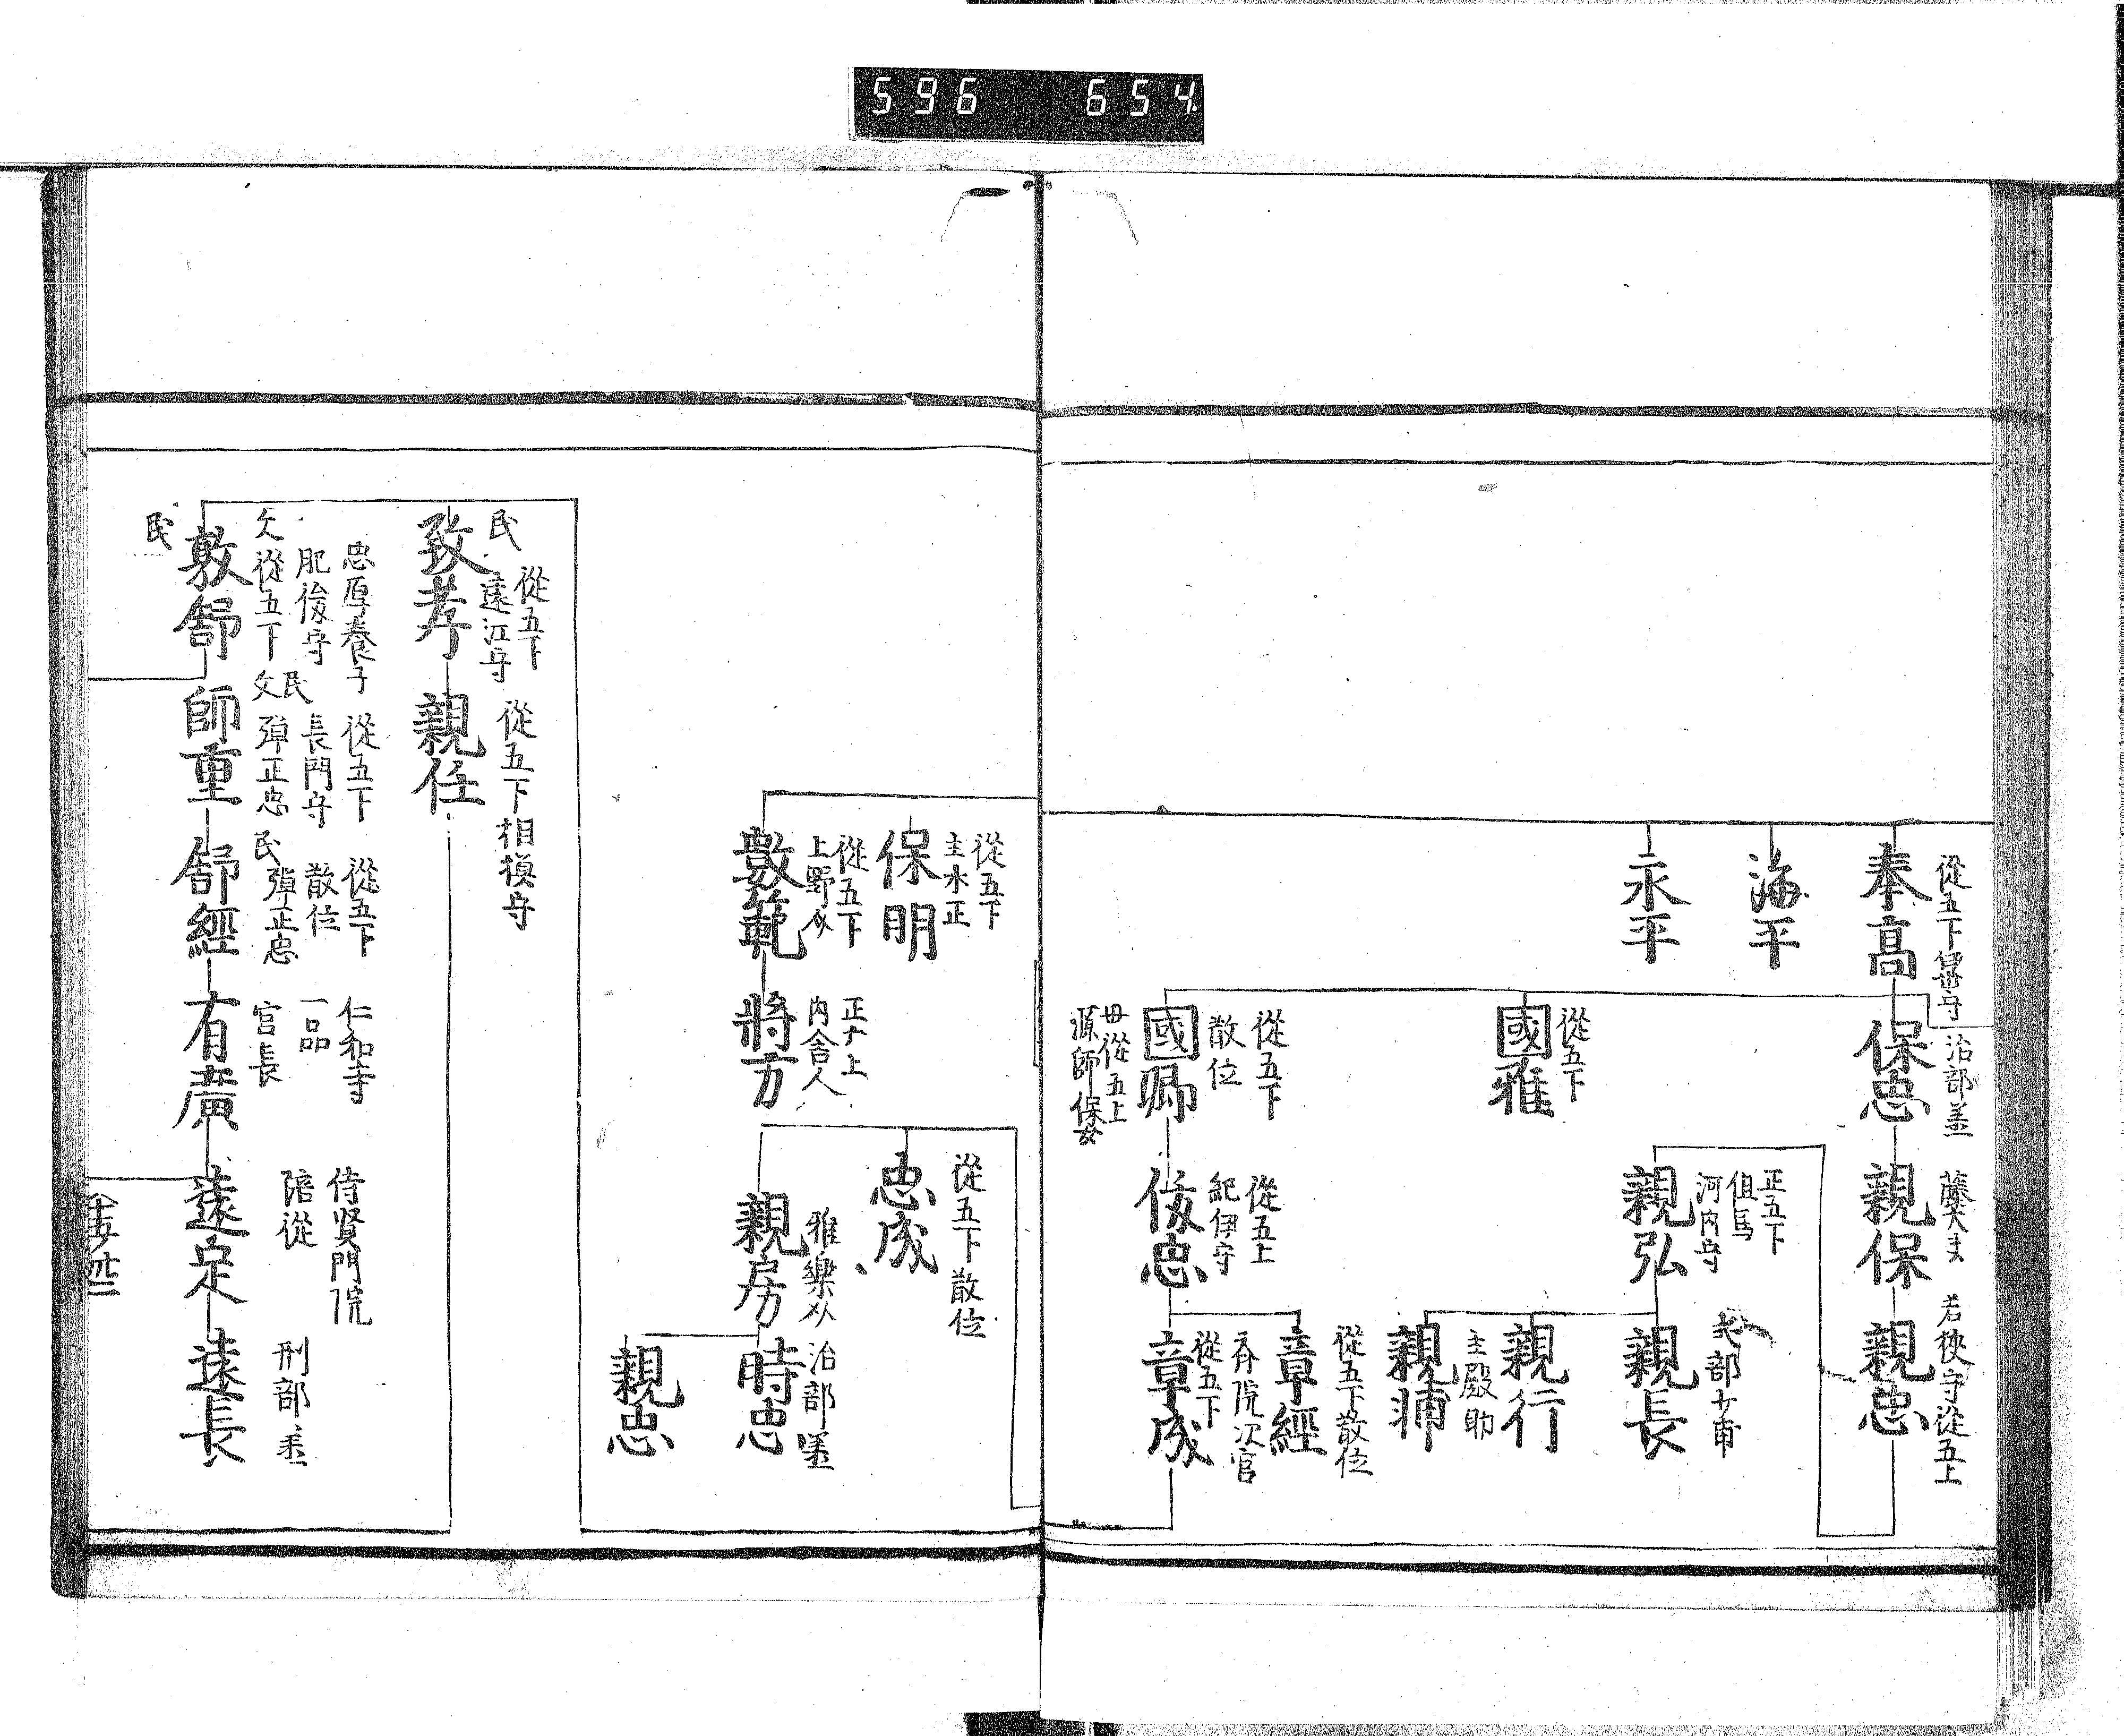 596 654
從五下
奉高
海平
永平
治部丞
保忠
從五下
國雅
從五下
散位
國卿
母從五上
源師保女
藤大夫
親保
正五下
但馬
河内守
親弘
從五上
紀伊守
俊忠
若狹守從五上
親忠
部少甫
親長
親行
主殿助
親浦
從五下散位
章經
斎院次官
從五下
章成
從五下
主水正
保明
從五下
上野介
敦範
正六上
内舎人
將方
從五下散位
忠成
雅樂
親房
治部丞
時忠
親忠
民
從五下
遠江守
致孝
從五下相摸守
親任
忠厚養子
肥後守
攵從五下
敦舒
民
從五下
長門守
彈正忠
攵民
師重
從五下
散位
彈正忠
民
舒經
仁和寺
一品
官長
有廣
侍賢門院
陪從
遠定
刑部丞
遠長